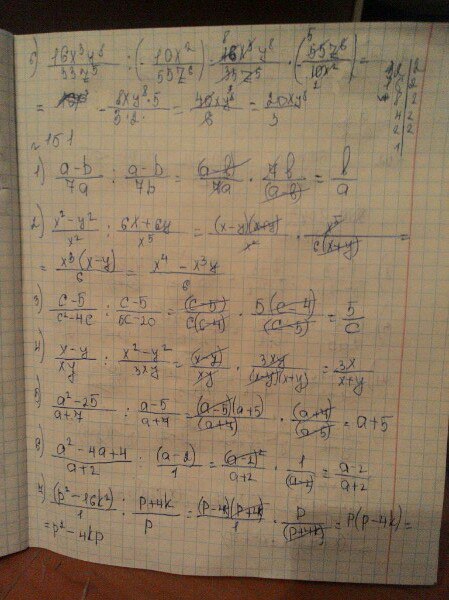 б) 16x³y⁸/33z⁵ : (-10x²/55z⁶) = 16x³y⁸/33z⁵ · (-55z⁶/10x²)
= - 8xy⁸·5/3·2 = 40xy⁸/6 = 20xy⁸/3
№ 151
1) a-b/7a : a-b/7b = (a-b)/7a · 7b/(a-b) = b/a
2) x²-y²/x² : 6x+6y/x⁵ = (x-y)(x+y)/x² · x⁵/6(x+y) =
= x³(x-y)/6 = x⁴-x³y/6
3) c-5/c²-4c : c-5/5c-20 = (c-5)/c(c-4) · 5(c-4)/(c-5) = 5/c
4) x-y/xy : x²-y²/3xy = (x-y)/xy · 3xy/(x-y)(x+y) = 3x/x+y
5) a²-25/a+7 : a-5/a+7 = (a-5)(a+5)/(a+7) · (a+7)/(a-5) = a+5
6) a²-4a+4/a+2 · (a-2)/1 = (a-2)²/a+2 · 1/(a-2) = a-2/a+2
7) (p²-16k²)/1 : p+4k/p = (p-4k)(p+4k)/1 · p/(p+4k) = p(p-4k) =
= p²-4kp